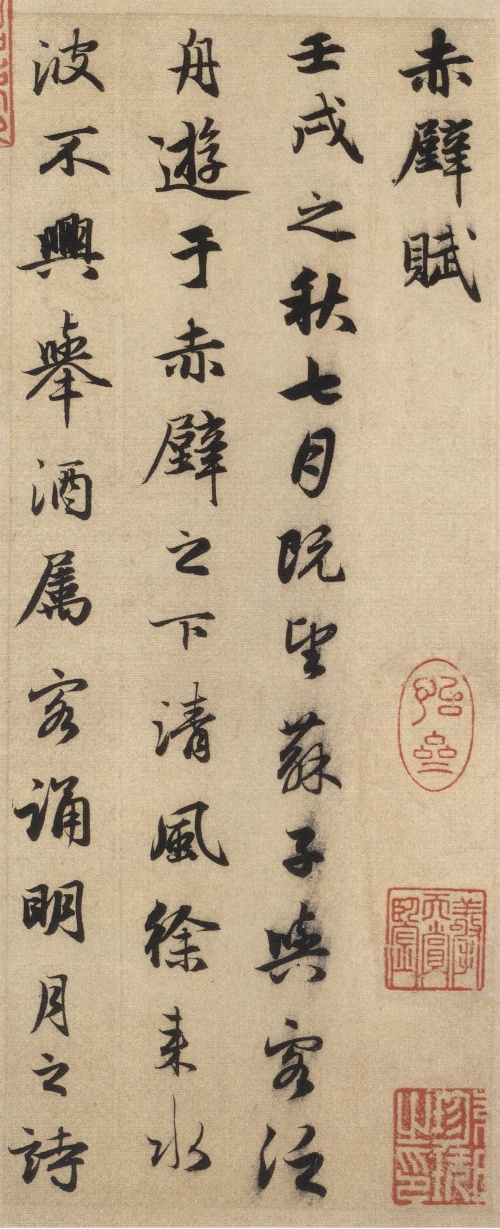 赤壁賦
壬戌之秋七月既望蘇子與客泛
舟遊于赤壁之下清風徐来水
波不興舉酒属客誦明月之詩